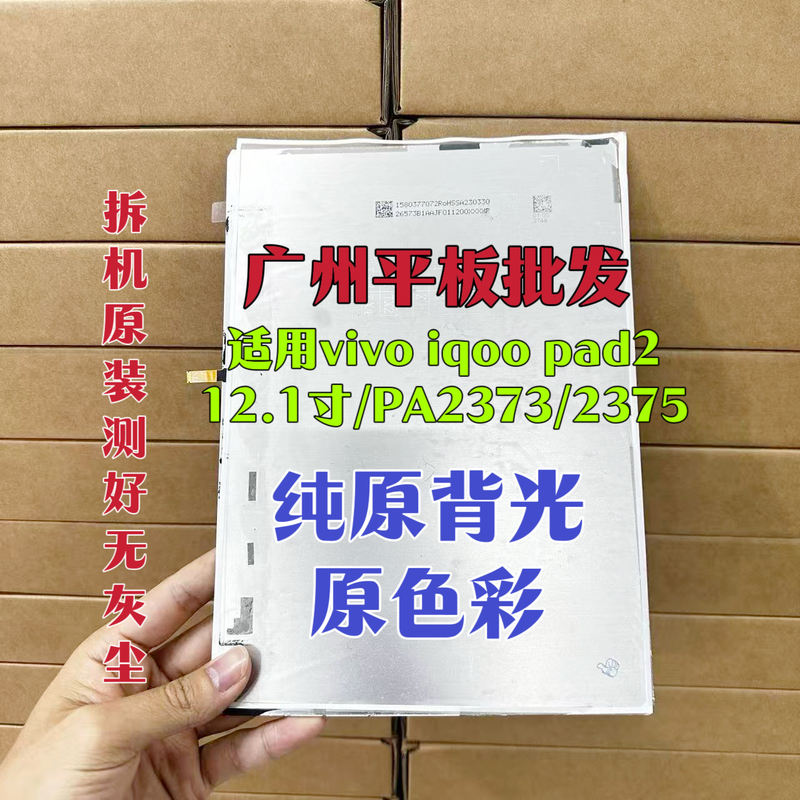 1580377072RoHSSA230330
26573B1AAJF011200X000F
广州平板批发
适用vivo iqoo pad2
12.1寸/PA2373/2375
纯原背光
原色彩
拆机原装测好无灰尘